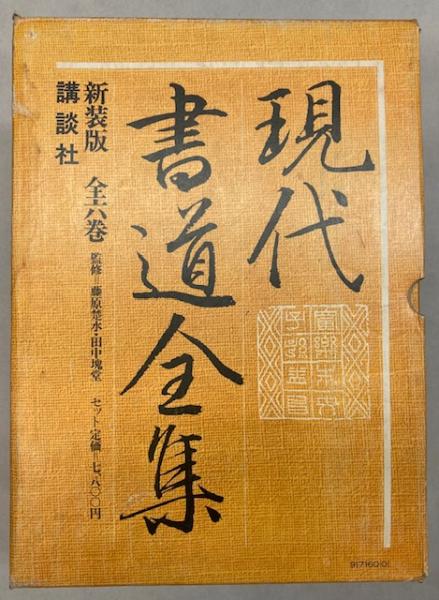 現代
書道全集
新装版 全六巻 監修 藤原楚水・田中塊堂 セット定価 七、八〇〇円
講談社